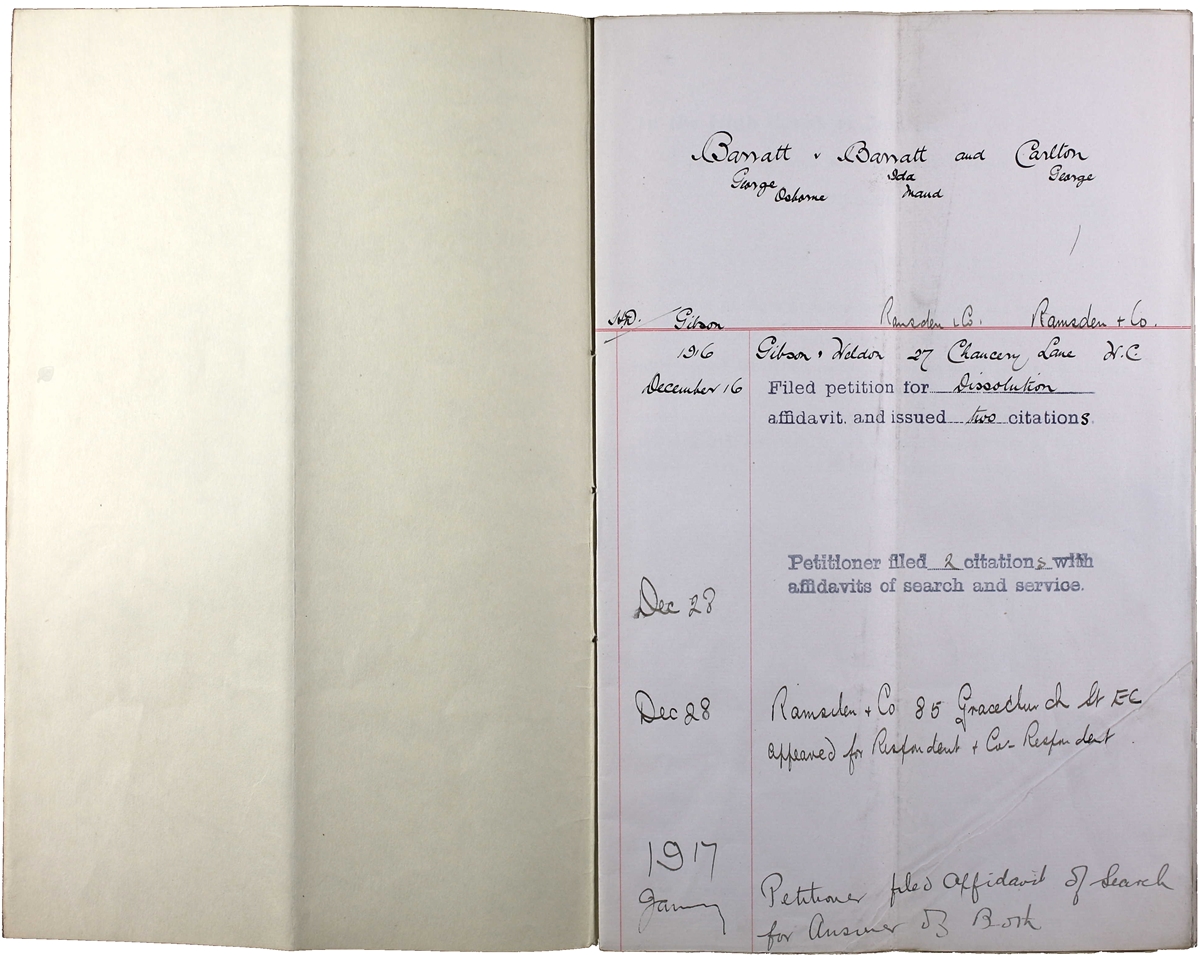 Barratt v Barratt and Carlton
George Ida George
Osborne Maud
Gibson Ramsden & Co. Ramsden & Co.
1916 Gibson & Weldon 27 Chancery Lane W.C.
December 16 Filed petition for Dissolution
affidavit, and issued two citations.
Petitioner filed 2 citations with
affidavits of search and service.
Dec 28
Dec 28 Ramsden & Co 85 Gracechurch St EC
appeared for Respondent & Co-Respondent.
1917
Petitioner filed Affidavit of Search
for Answer of Both